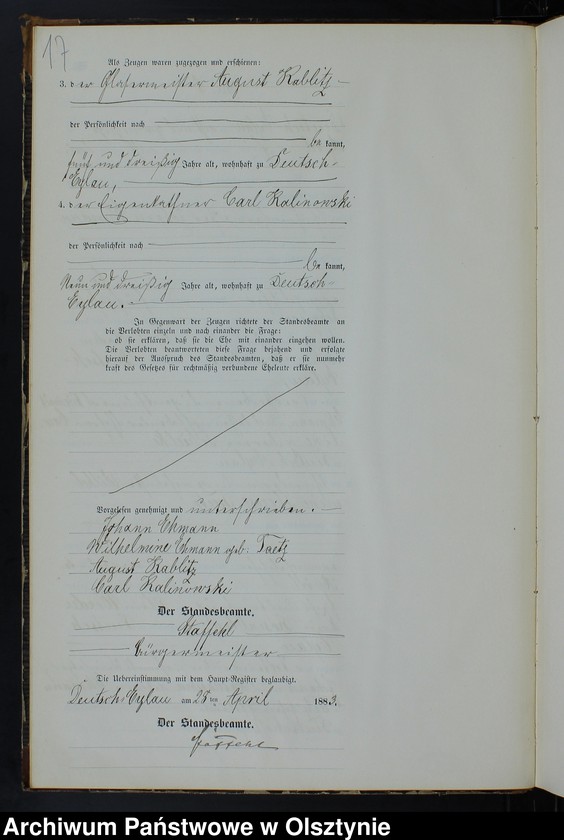 17
Als Zeugen waren zugezogen und erschienen:
3. der Glasermeister August Kablitz
der Persönlichkeit nach
be kannt,
fünf und dreißig Jahre alt, wohnhaft zu Deutsch-
Eylau,
4. der Eigenkäthner Carl Kalinowski
der Persönlichkeit nach
be kannt,
Neun und dreißig Jahre alt, wohnhaft zu Deutsch-
Eylau.
In Gegenwart der Zeugen richtete der Standesbeamte an
die Verlobten einzeln und nach einander die Frage:
ob sie erklären, daß sie die Ehe mit einander eingehen wollen.
Die Verlobten beantworteten diese Frage bejahend und erfolgte
hierauf der Ausspruch des Standesbeamten, daß er sie nunmehr
kraft des Gesetzes für rechtmäßig verbundene Eheleute erkläre.
Vorgelesen genehmigt und unterschrieben.
Johann Ehmann
Wilhelmine Ehmann geb. Taetz
August Kablitz
Carl Kalinowski
Der Standesbeamte.
Staffehl
Bürgermeister
Die Uebereinstimmung mit dem Haupt-Register beglaubigt.
Deutsch-Eylau am 28 ten April 1883.
Der Standesbeamte.
Staffehl
Archiwum Państwowe w Olsztynie